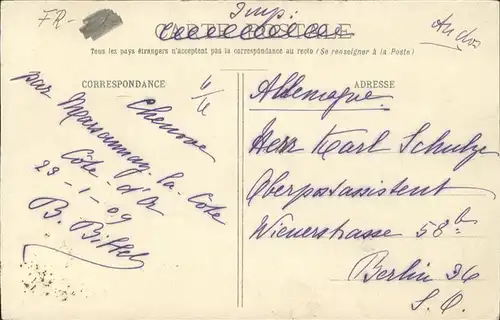 FR -
Imp:
Au dos
CARTE POSTALE
Tous les pays étrangers n'acceptent pas la correspondance au recto (Se renseigner à la Poste)
CORRESPONDANCE
Chenove
par Marsannay-la-Côte
Côte-d'Or
23-1-09
ADRESSE
Allemagne
Herr Karl Schulze
Oberpostassistent
Wienerstrasse 58 b
Berlin 36
S. O.